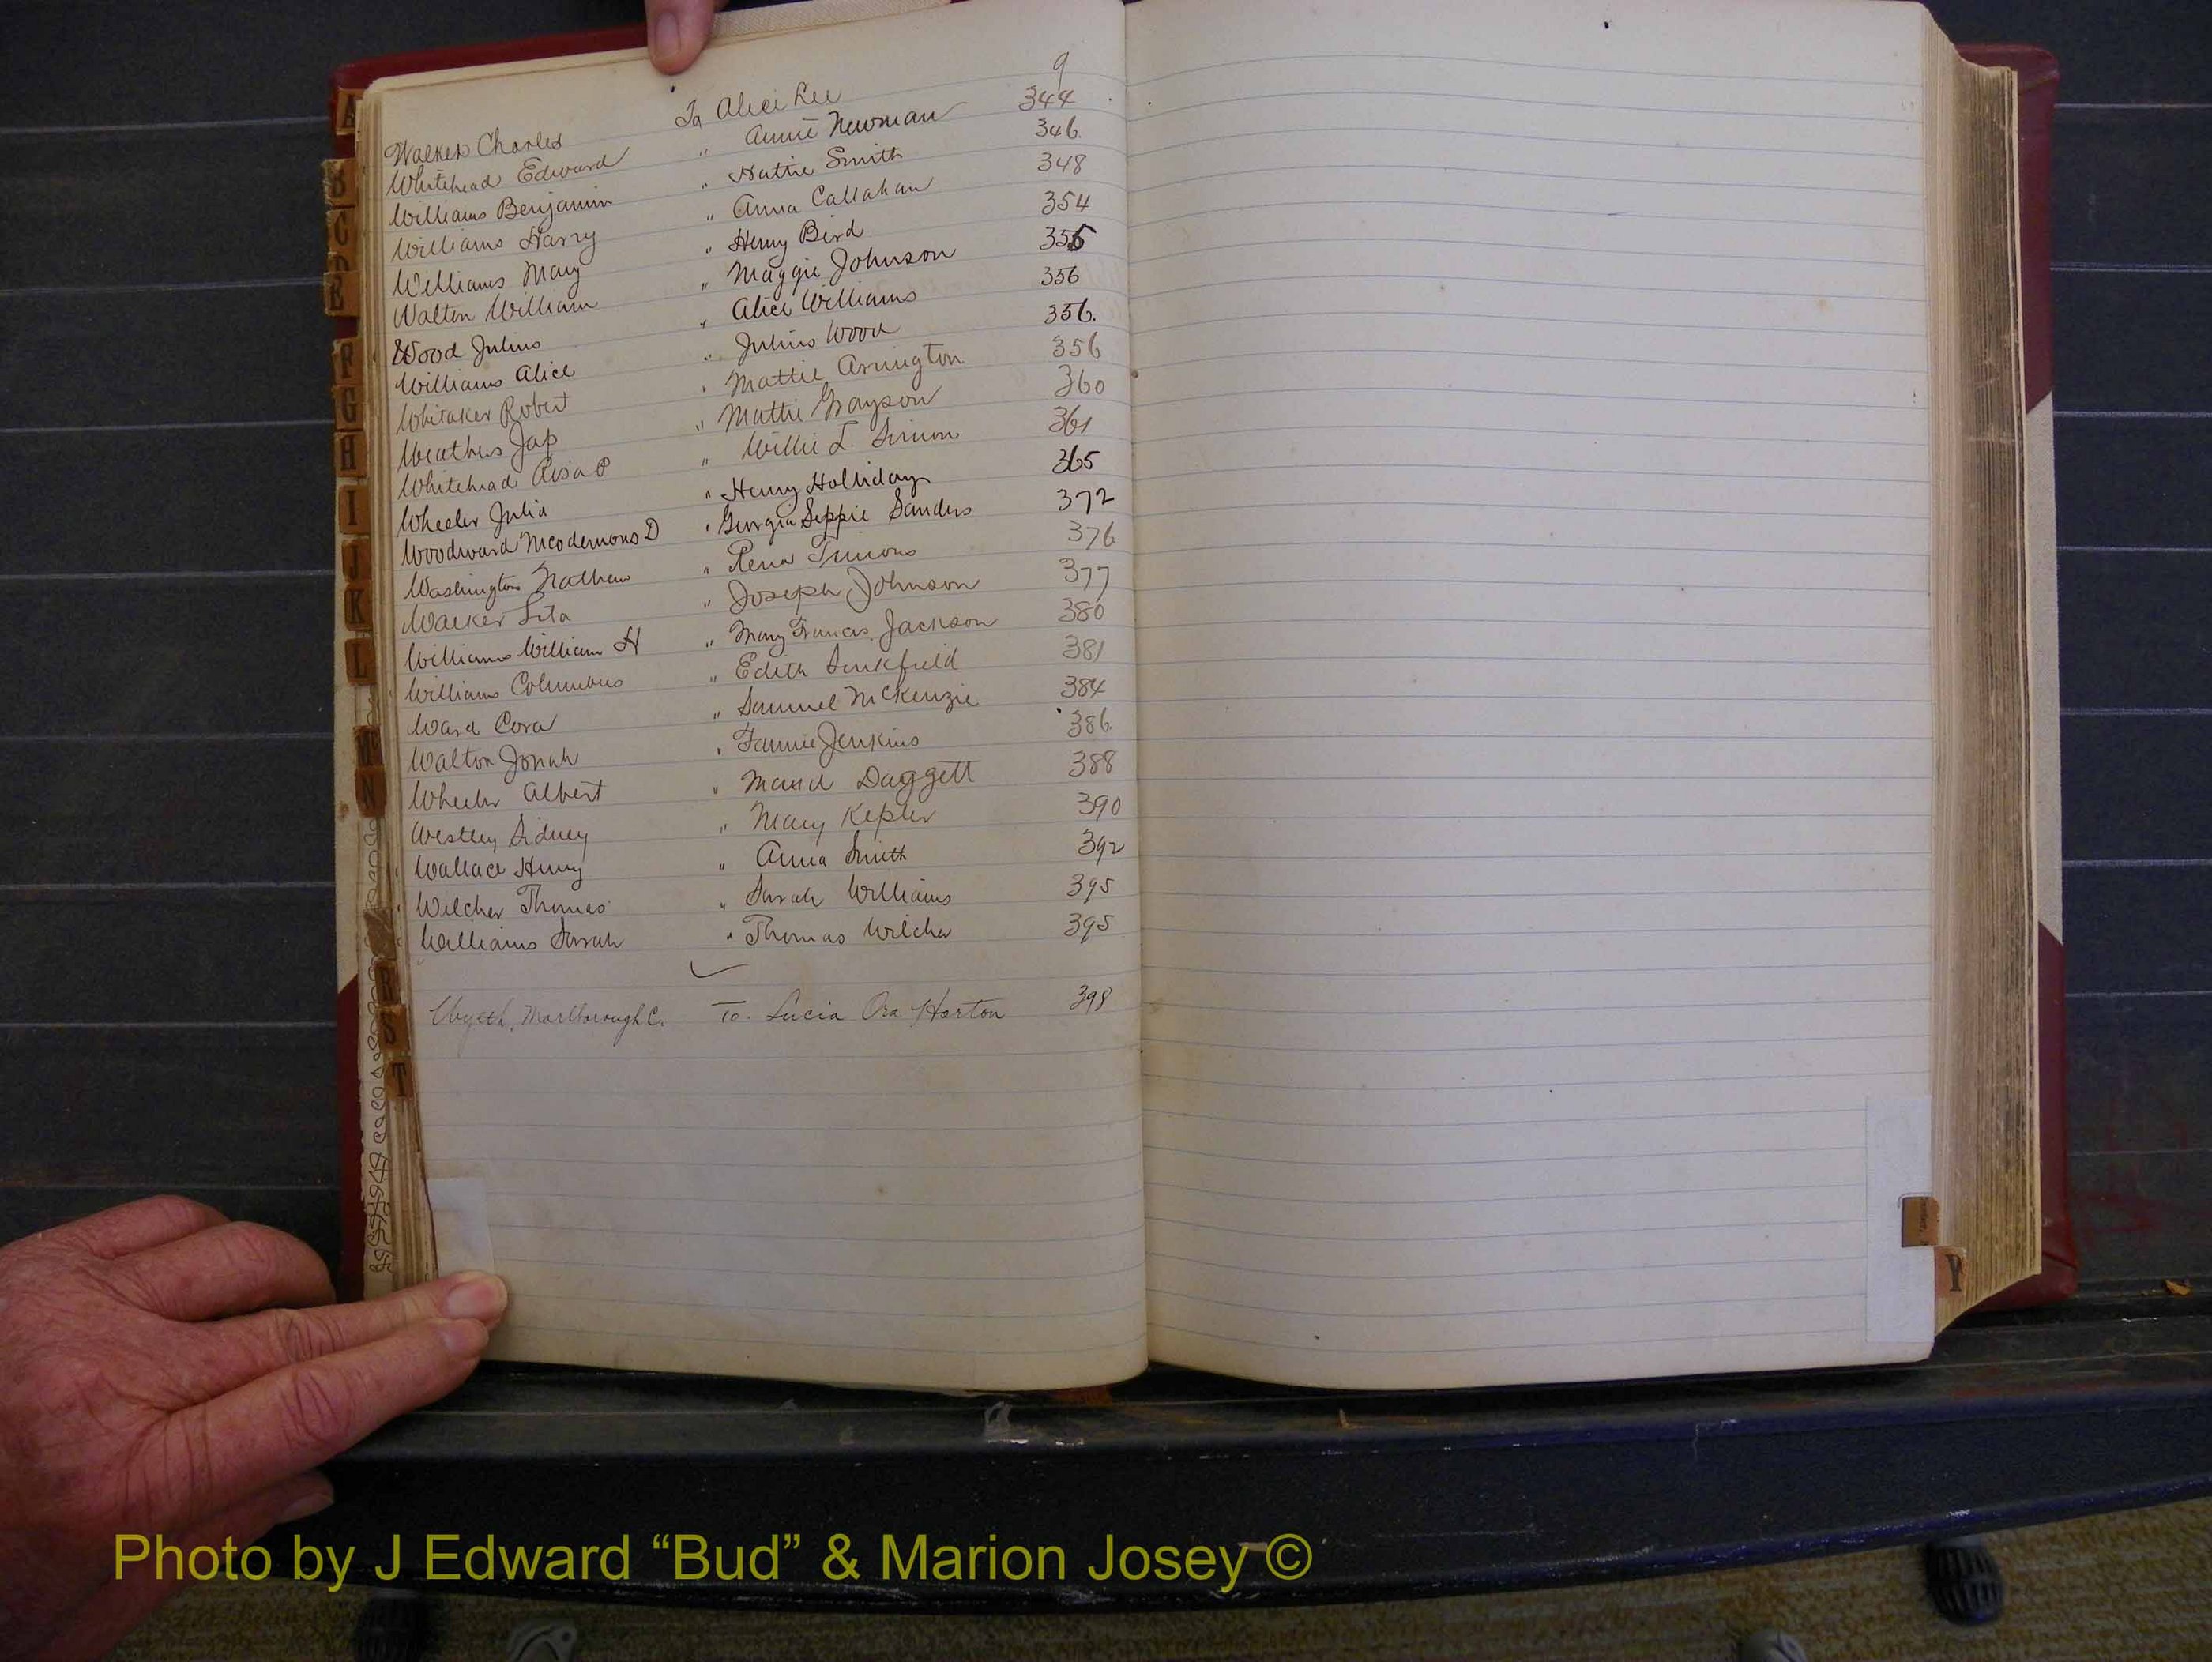 9
Walker Charles To Alice Lee 344
Whitehead Edward " Annie Newman 346.
Williams Benjamin " Hattie Smith 348
Williams Harry " Anna Callahan 354
Williams Mary " Henry Bird 355
Walton William " Maggie Johnson 356
Wood Julius " Alice Williams 356.
Williams Alice " Julius Wood 356
Whitaker Robert " Mattie Arrington 360
Weathers Jap " Mattie Grayson 361
Whitehead Rosa P " Willie L. Simon 365
Wheeler Julia " Henry Holliday 372
Woodward D " Georgia Seppie Sanders 376
Washington Nathew " Rena Timons 377
Walker Lita " Joseph Johnson 380
Williams William H " Mary Francis Jackson 381
Williams Columbus " Edith Sinkfield 384
Ward Cora " Samuel McKenzie 386
Walton Jonah " Fannie Jenkins 388
Wheeler Albert " Maud Daggett 390
Westley Sidney " Mary Kepler 392
Wallace Henry " Anna Smith 395
Wilcher Thomas " Sarah Williams 395
Williams Sarah " Thomas Wilcher
Wyeth, Marlborough C. To. Lucia Ora Horton 398
A
B
C
D
E
F
G
H
I
J
K
L
M
N
R
S
T
Y
Photo by J Edward “Bud” & Marion Josey ©